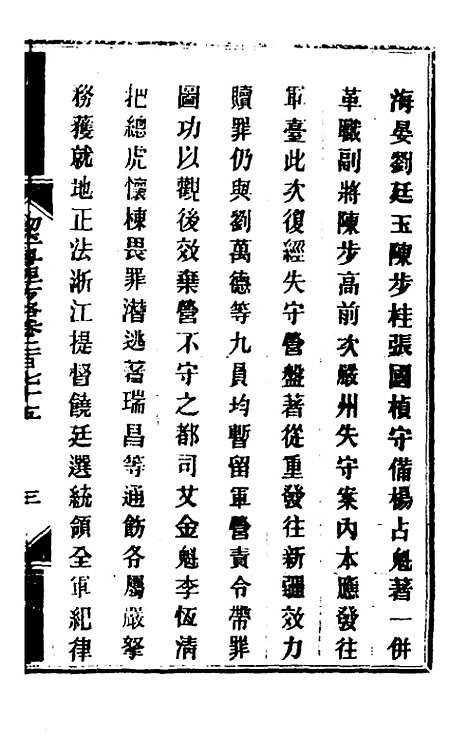 海晏劉廷玉陳步桂張國楨守備楊占魁著一併
革職副將陳步高前次嚴州失守案內本應發往
軍臺此次復經失守營盤著從重發往新疆效力
贖罪仍與劉萬德等九員均暫留軍營責令帶罪
圖功以觀後效棄營不守之都司艾金魁李恆清
把總虎懷棟畏罪潛逃著瑞昌等通飭各屬嚴拏
務獲就地正法浙江提督饒廷選統領全軍紀律
卷二百七十五
三